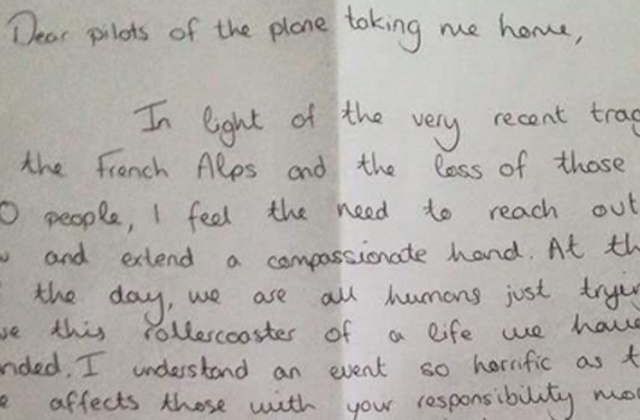 Dear pilots of the plane taking me home,
In light of the very recent trag
the French Alps and the loss of those
0 people, I feel the need to reach out
and extend a compassionate hand. At th
the day, we are all humans just tryin
ve this rollercoaster of a life we have
nded. I understand an event so horrific as t
e affects those with your responsibility mo